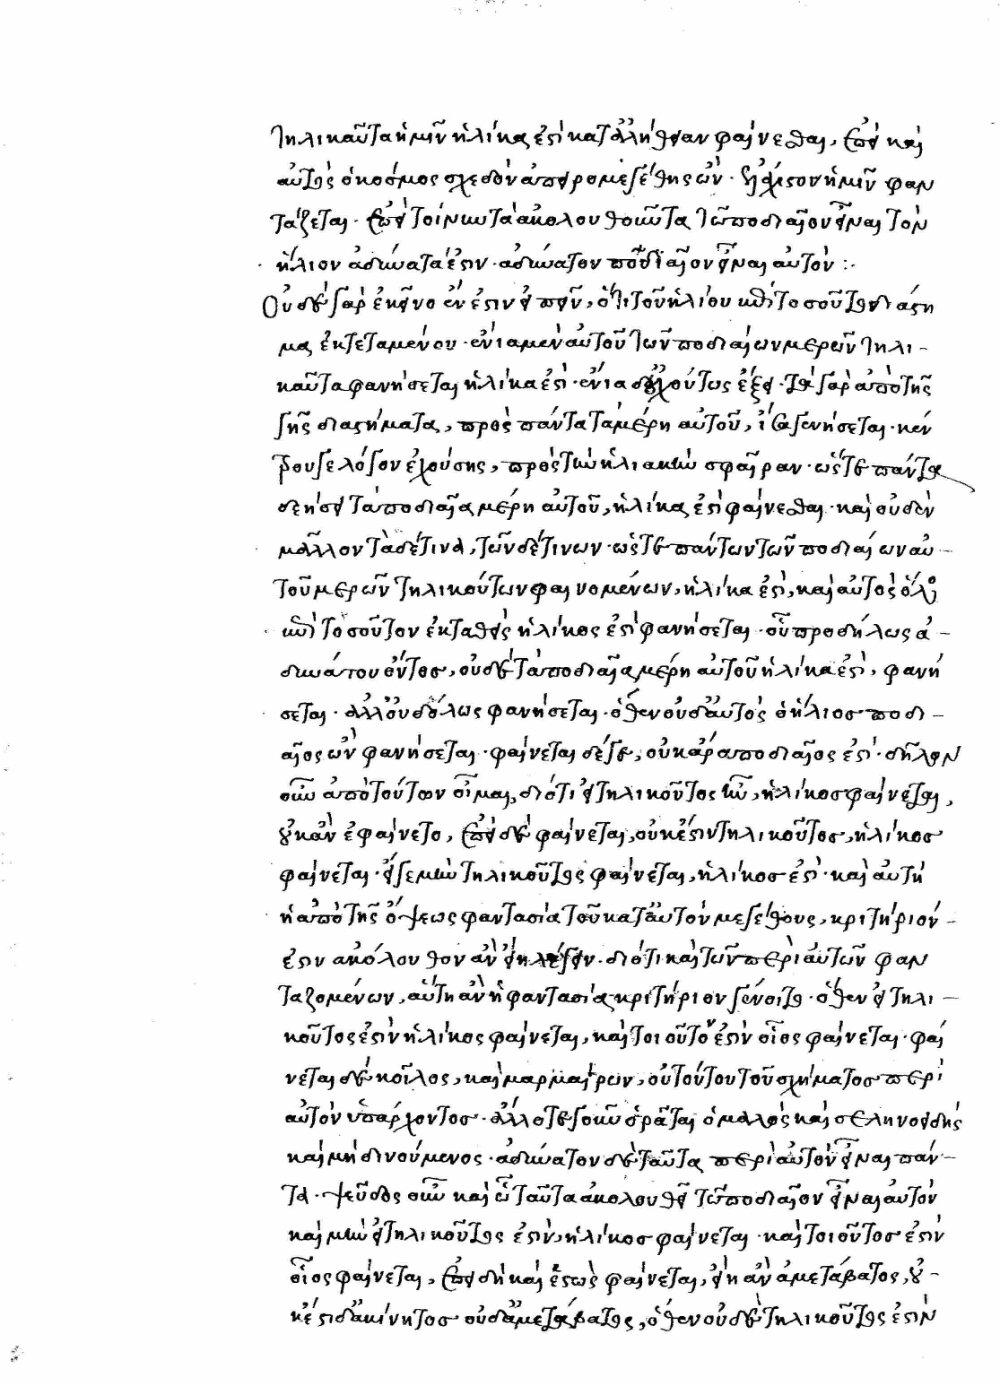 τηλικαῦτα ἡμῖν ἡλίκα ἐστὶ κατ' ἀλήθειαν φαίνεσθαι, ἐπεὶ καὶ
αὐτὸς ὁ κόσμος σχεδὸν ἀπειρομεγέθης ὢν, βράχιστον ἡμῖν φαν
τάζεται. ἐπεὶ τοίνυν τὰ ἀκολουθοῦντα τῷ ποδιαῖον εἶναι τὸν
ἥλιον ἀδύνατά ἐστιν, ἀδύνατον ποδιαῖον εἶναι αὐτόν:
Οὐδὲ γὰρ ἐκεῖνο ἔνεστιν εἰπεῖν, ὅτι τοῦ ἡλίου ἐπὶ τοσοῦτο διάστη
μα ἐκτεταμένου, ἔνια μὲν αὐτοῦ τῶν ποδιαίων μερῶν τηλι-
καῦτα φανήσεται ἡλίκα ἐστὶ, ἔνια δ' οὐχ οὕτως ἕξει. τὰ γὰρ ἀπὸ τῆς
γῆς διαστήματα, πρὸς πάντα τὰ μέρη αὐτοῦ, ἴσα γενήσεται, κέν
τρου λόγον ἐχούσης, πρὸς τὴν ἡλιακὴν σφαῖραν. ὥστε πάντα
δεήσει τὰ ποδιαῖα μέρη αὐτοῦ, ἡλίκα ἐστὶ φαίνεσθαι. καὶ οὐδὲν
μᾶλλον τὰ δέ τινα, τῶν δέ τινων. ὥστε πάντων τῶν ποδιαίων αὐ-
τοῦ μερῶν τηλικούτων φαινομένων, ἡλίκα ἐστὶ, καὶ αὐτὸς ὅλος
ἐπὶ τοσοῦτον ἐκταθεὶς ἡλίκος ἐστὶ φανήσεται. οὗ προδήλως ἀ-
δυνάτου ὄντος, οὐδὲ τὰ ποδιαῖα μέρη αὐτοῦ ἡλίκα ἐστὶ, φανή
σεται. ἀλλ' οὐδ' ὅλως φανήσεται. ὅθεν οὐδ' αὐτὸς ὁ ἥλιος ποδι-
αῖος ὢν φανήσεται. φαίνεται δέ γε, οὐκ ἄρα ποδιαῖος ἐστί. δῆλον
οὖν ἀπὸ τούτων οἶμαι, διότι εἰ τηλικοῦτος ἦν, ἡλίκος φαίνεται,
οὐκ ἂν ἐφαίνετο, ἐπεὶ δὲ φαίνεται, οὐκ ἔστιν τηλικοῦτος, ἡλίκος
φαίνεται. εἴ γε μὴν τηλικοῦτος φαίνεται, ἡλίκος ἐστὶ. καὶ αὐτὴ
ἡ ἀπὸ τῆς ὄψεως φαντασία τοῦ κατ' αὐτὸν μεγέθους, κριτήριον-
ἐστιν ἀκόλουθον ἂν εἴη λέγειν. διότι καὶ τῶν περὶ αὐτῶν φαν
ταζομένων, αὕτη ἂν ἡ φαντασία κριτήριον γένοιτο. ὅθεν εἰ τηλι-
κοῦτος ἐστὶν ἡλίκος φαίνεται, καὶ τοιοῦτο ἐστὶν οἷος φαίνεται. φαί
νεται δὲ κοῖλος, καὶ μαρμαίρων, οὐ τούτου τοῦ σχήματος περὶ
αὐτὸν ὑπάρχοντος. ἄλλοτε γοῦν ὁρᾶται ὁμαλὸς καὶ σεληνοειδὴς
καὶ μὴ δινούμενος. ἀδύνατον δὲ ταῦτα περὶ αὐτὸν εἶναι πάν-
τα. ψεῦδος οὖν καὶ ᾧ ταῦτα ἀκολουθεῖ τῷ ποδιαῖον εἶναι αὐτόν
καὶ μὴν εἰ τηλικοῦτος ἐστὶν, ἡλίκος φαίνεται, καὶ τοιοῦτος ἐστὶν
οἷος φαίνεται, ἐπειδὴ καὶ ἑστὼς φαίνεται, εἴη ἂν ἀμετάβατος, οὐ-
κ ἔστι δ' ἀκίνητος οὐδ' ἀμετάβατος, ὅθεν οὐδὲ τηλικοῦτος ἐστὶν